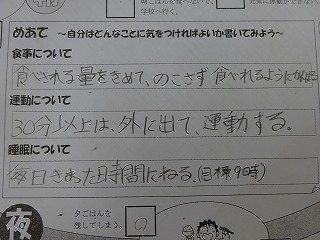 朝ごはんを食べないで、
学校へ行く。
めあて ～自分はどんなことに気をつければよいか書いてみよう～
食事について
食べきれる量をきめて、のこさず食べれるようにがんばる
運動について
30分以上は、外に出て、運動する。
睡眠について
毎日きまった時間にねる。(目標9時)
夜
夕ごはんを
残してしまう。